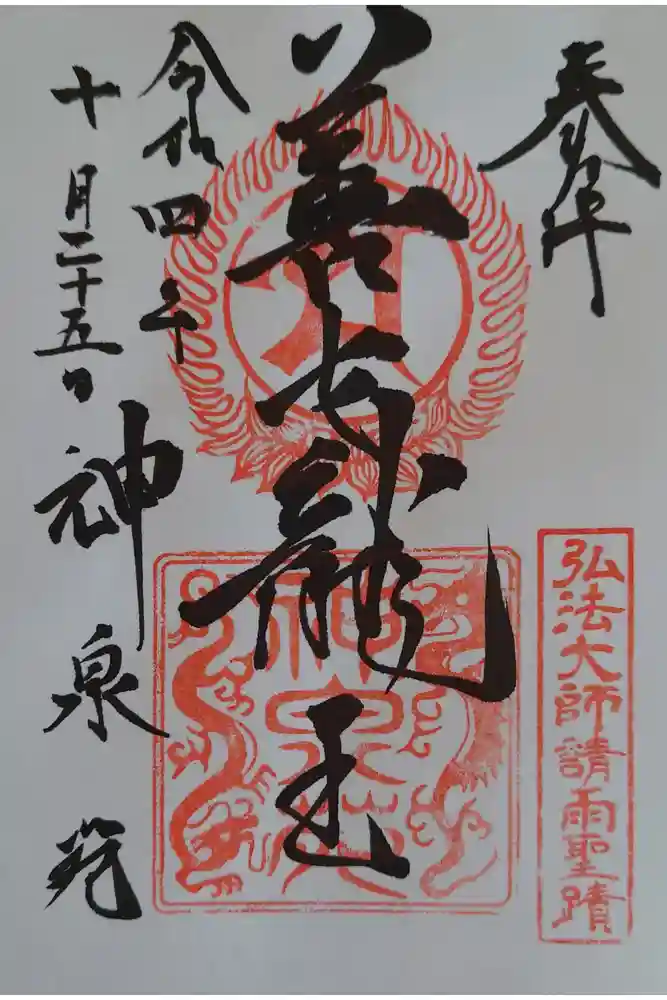 奉拝
弘法大師請雨聖蹟
善女龍王
神泉苑
令和四年
十月二十五日
神泉苑